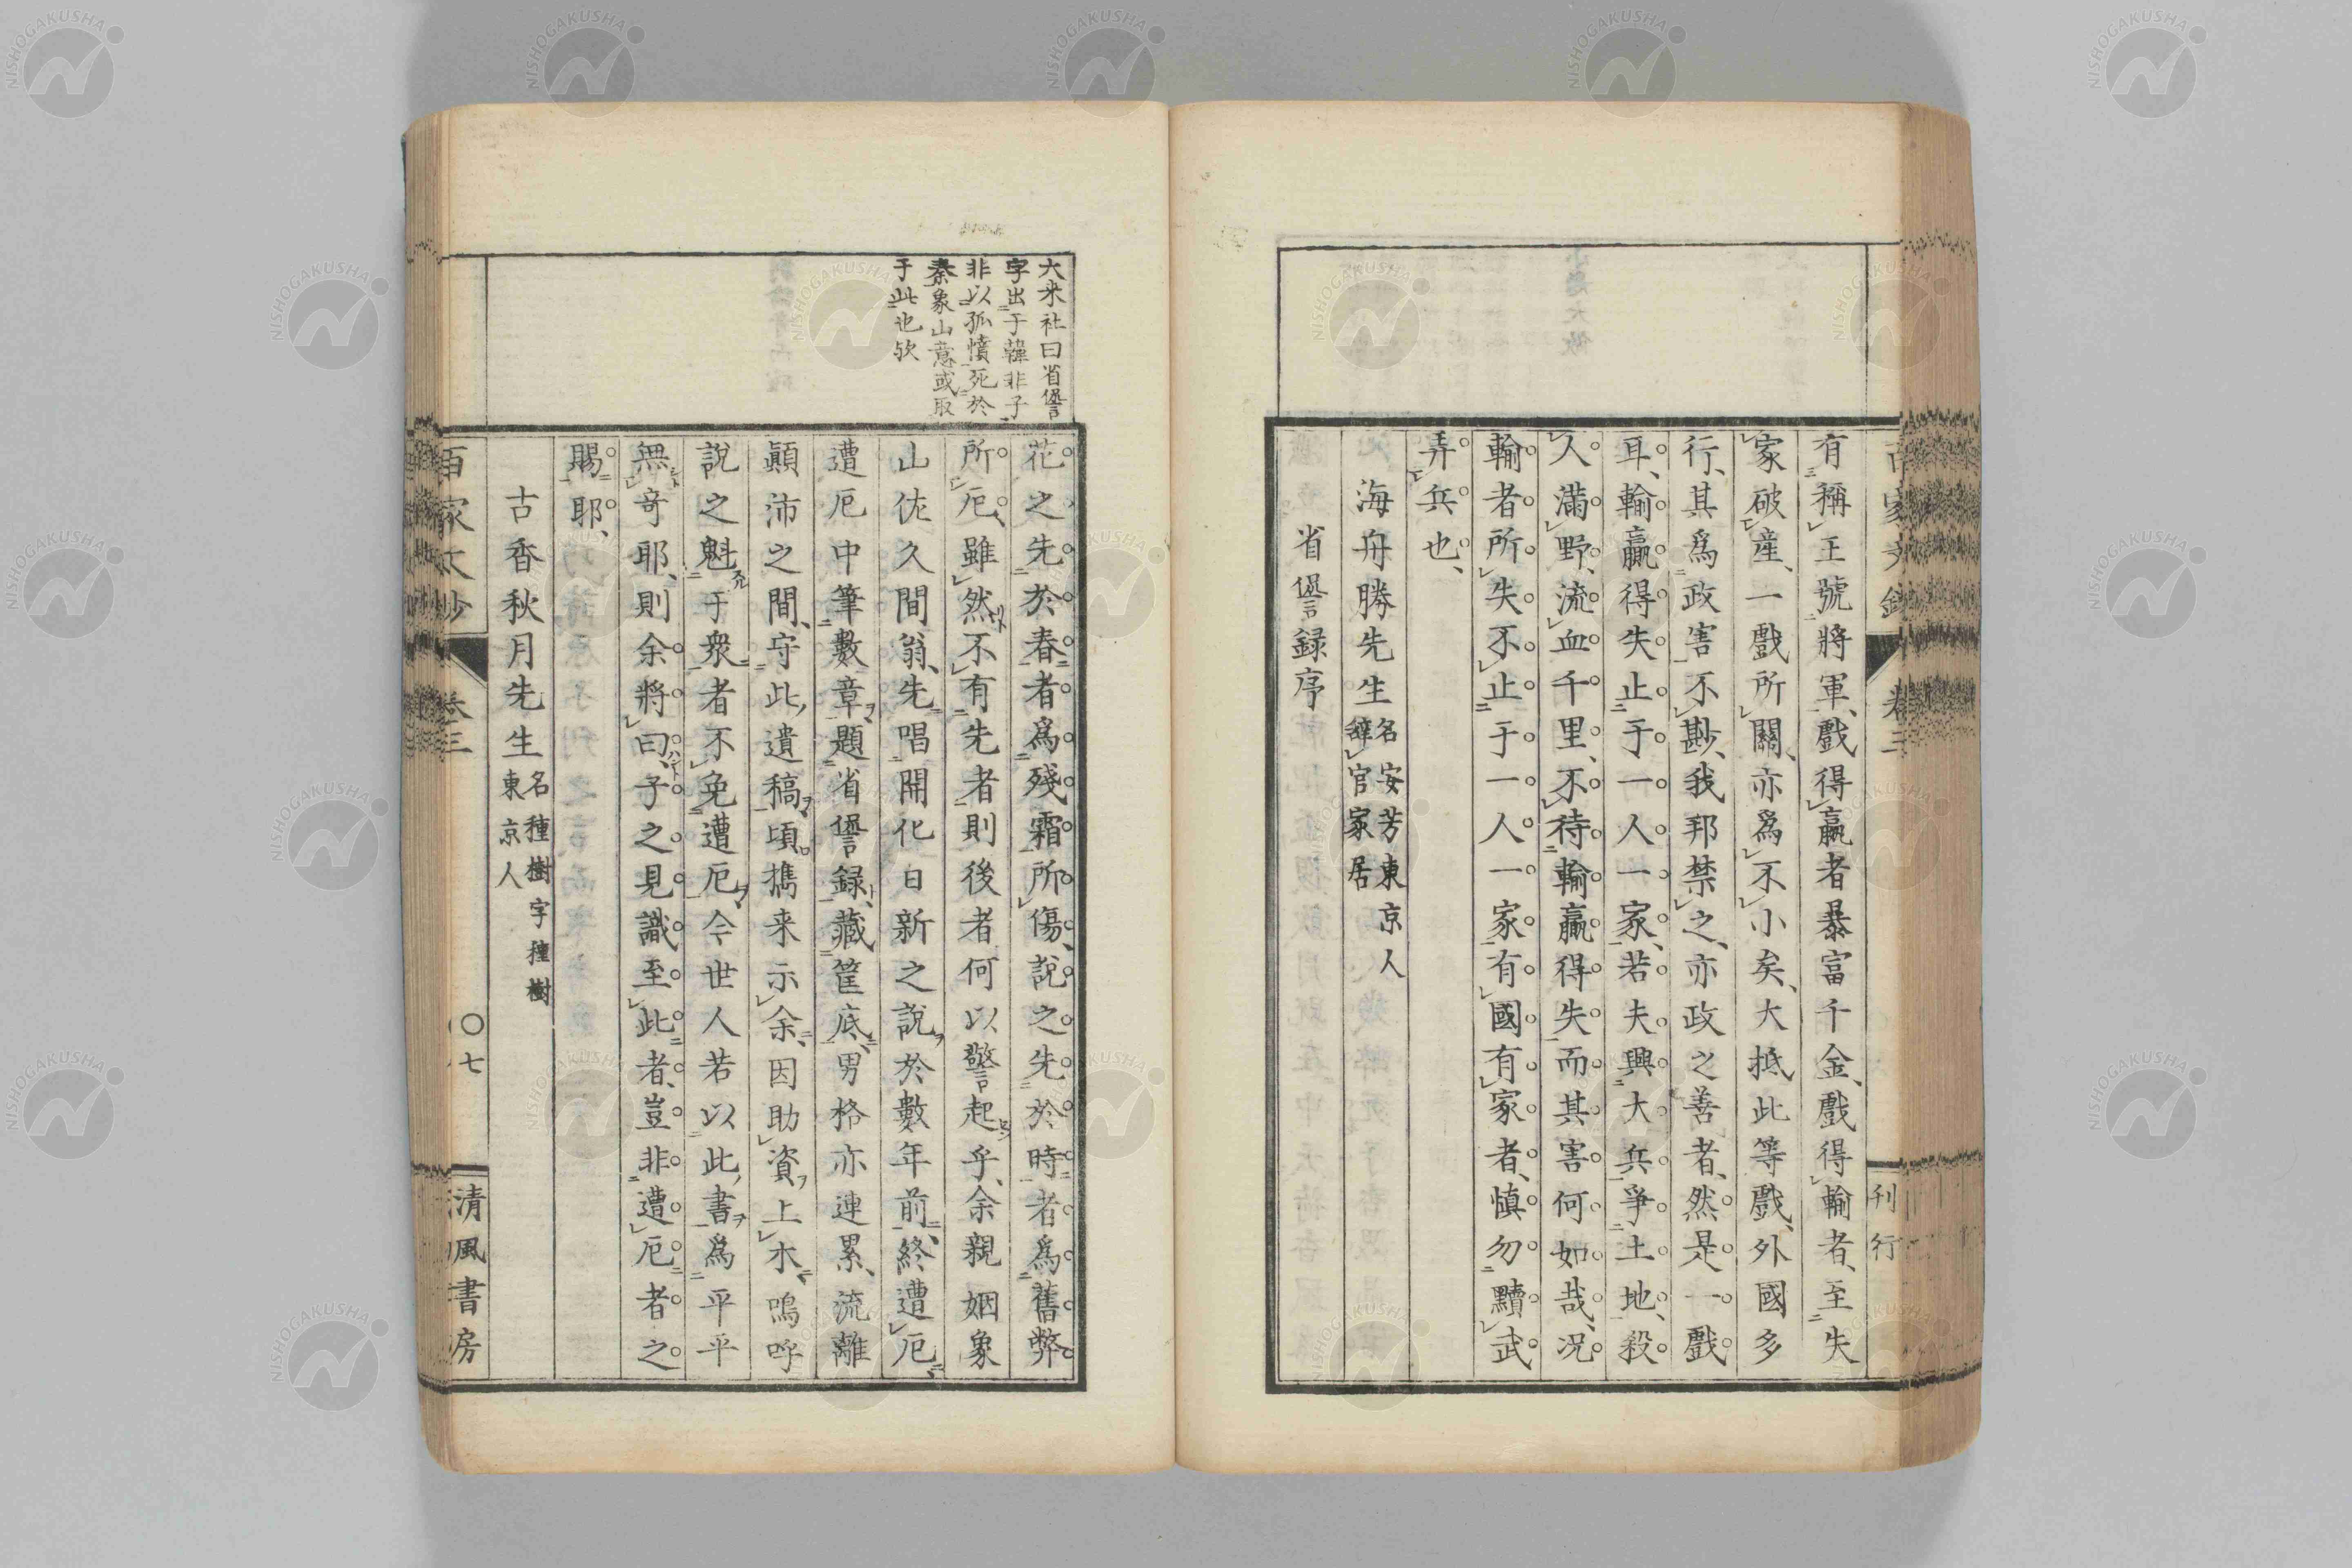 有稱王號將軍、戲得贏者暴富千金、戲得輸者、至失
家破産、一戲所關、亦爲不小矣、大抵此等戲、外國多
行、其爲政害不尠、我邦禁之、亦政之善者、然是一戲
耳、輸贏得失止于一人一家、若夫興大兵爭土地、殺
人滿野、流血千里、不待輸贏得失而其害何如哉、況
輸者所失不止于一人一家有國有家者、愼勿黷武
弄兵也、
海舟勝先生名安芳東京人
辭官家居
省諐録序
刊行
大米社曰省諐
字出于韓非子
非以孤憤死於
秦象山意或取
于此也欤
花之先於春者爲殘霜所傷、說之先於時者爲舊弊
所厄、雖然不有先者則後者何以警起乎、余親姻象
山佐久間翁、先唱開化日新之說於數年前、終遭厄、
遭厄中筆數章、題省諐録、藏筐底、男格亦連累、流離
顚沛之間、守此遺稿、頃攜来示余、因助資上木、嗚呼
說之魁于衆者不免遭厄、今世人若以此書爲平平
無奇耶、則余將曰、子之見識至此者、豈非遭厄者之
賜耶、
古香秋月先生名種樹字種樹
東京人
百家文鈔 卷三 〇七 清風書房